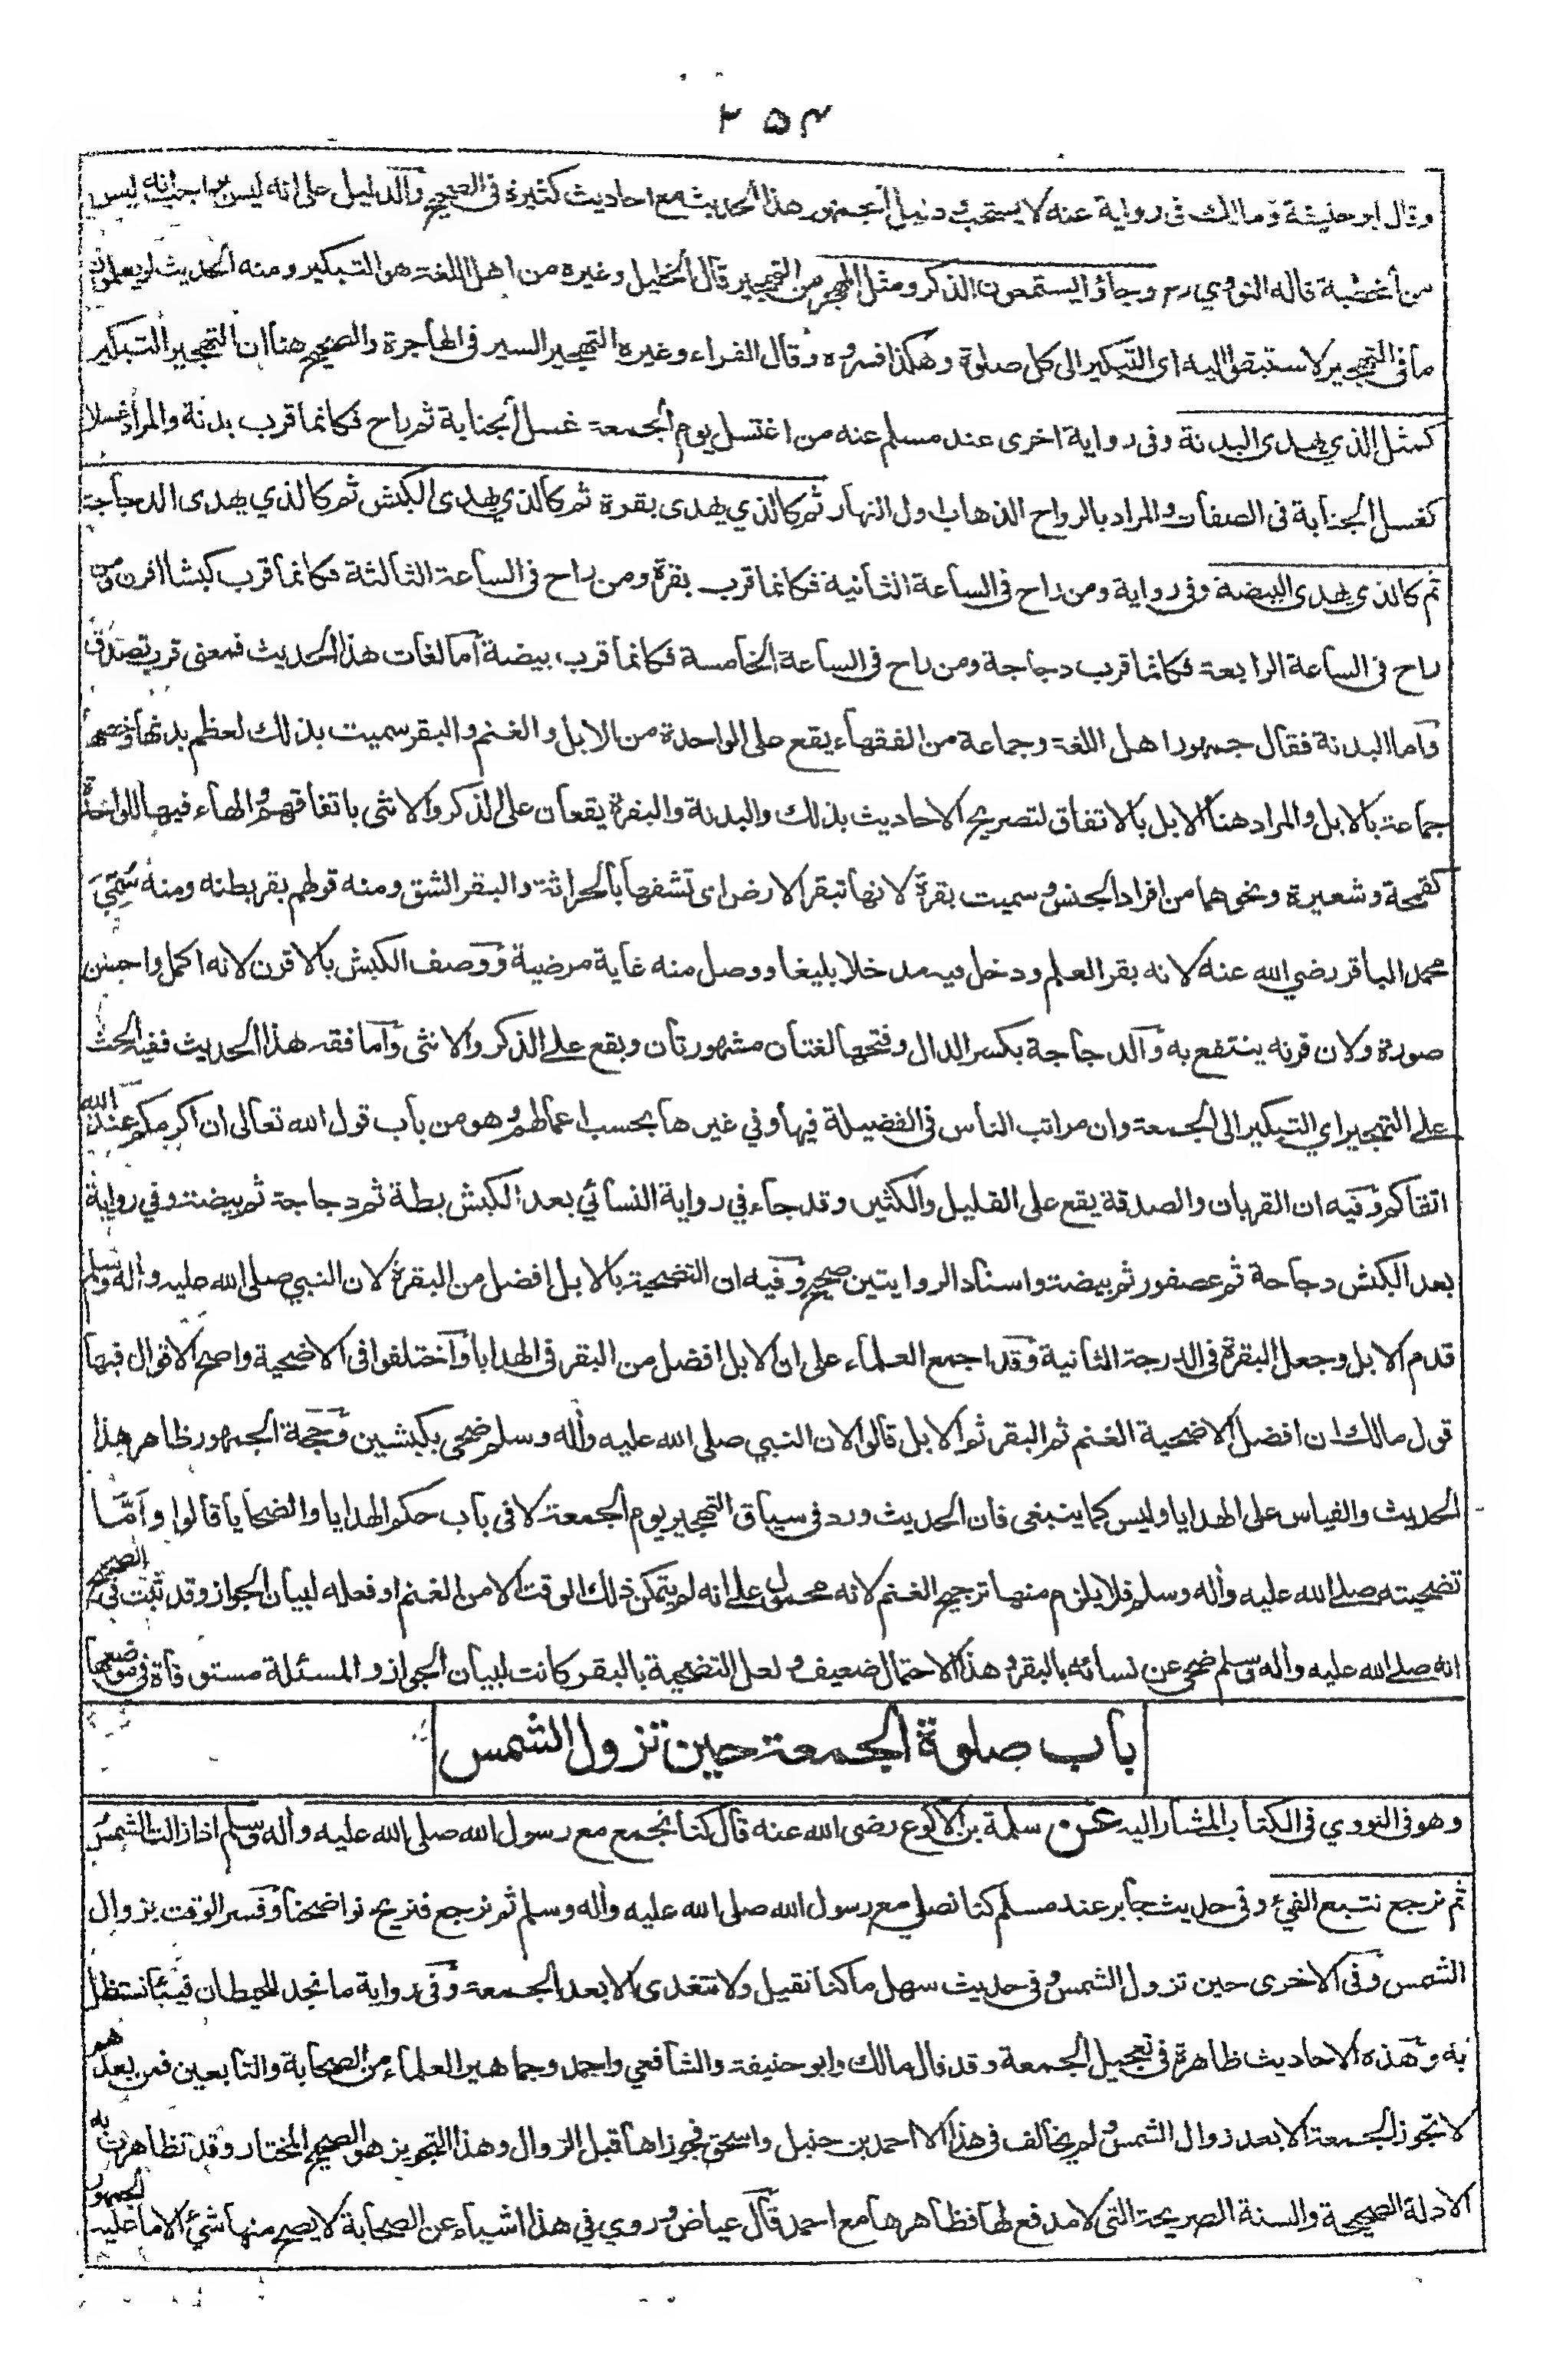 ۲۵۴
وقال ابو حنيفة ومالك فى رواية عنه لا يستحب ودليل الجمهور هذا الحديث مع احاديث كثيرة فى الصحيح والدليل على انه ليس بواجب انه ليس
من الخطبة قاله النووي رح وجاؤا يستمعون الذكر ومثل المهجر من التهجير قال الخليل وغيره من اهل اللغة هو التبكير ومنه الحديث لو يعلمون
ما فى التهجير لاستبقوا اليه اى التبكير الى كل صلوة وهكذا فسروه وقال الفراء وغيره التهجير السير فى الهاجرة والصحيح هنا ان التهجير التبكير
كمثل الذي يهدى البدنة وفى رواية اخرى عند مسلم عنه من اغتسل يوم الجمعة غسل الجنابة ثم راح فكانما قرب بدنة والمراد غسلا
كغسل الجنابة فى الصفات والمراد بالرواح الذهاب اول النهار ثم كالذي يهدى بقرة ثم كالذي يهدى الكبش ثم كالذي يهدى الدجاجة
ثم كالذي يهدى البيضة وفى رواية ومن راح فى الساعة الثانية فكانما قرب بقرة ومن راح فى الساعة الثالثة فكانما قرب كبشا اقرن ومن
راح فى الساعة الرابعة فكانما قرب دجاجة ومن راح فى الساعة الخامسة فكانما قرب بيضة اما لغات هذا الحديث فمعنى قرب تصدق
واما البدنة فقال جمهور اهل اللغة وجماعة من الفقهاء يقع على الواحدة من الابل والغنم والبقر سميت بذلك لعظم بدنها وخصها
جماعة بالابل والمراد هنا الابل بالاتفاق لتصريح الاحاديث بذلك والبدنة والبقرة يقعان على الذكر والانثى باتفاقهم والهاء فيها للواحدة
كقمحة وشعيرة ونحوهما من افراد الجنس وسميت بقرة لانها تبقر الارض اى تشقها بالحراثة والبقر الشق ومنه قولهم بقر بطنه ومنه سُمِّيَ
محمد الباقر رضي الله عنه لانه بقر العلم ودخل فيه مدخلا بليغا ووصل منه غاية مرضية ووصف الكبش بالاقرن لانه اكمل واحسن
صورة ولان قرنه ينتفع به والدجاجة بكسر الدال وفتحها لغتان مشهورتان ويقع على الذكر والانثى واما فقه هذا الحديث ففيه الحث
على التهجير اي التبكير الى الجمعة وان مراتب الناس فى الفضيلة فيها وفي غيرها بحسب اعمالهم وهو من باب قول الله تعالى ان اكرمكم عند الله
اتقاكم وفيه ان القربان والصدقة يقع على القليل والكثير وقد جاء في رواية النسائي بعد الكبش بطة ثم دجاجة ثم بيضة وفي رواية
بعد الكبش دجاجة ثم عصفور ثم بيضة واسناد الروايتين صحيح وفيه ان التضحية بالابل افضل من البقرة لان النبي صلى الله عليه واله وسلم
قدم الابل وجعل البقرة فى الدرجة الثانية وقد اجمع العلماء على ان الابل افضل من البقر فى الهدايا واختلفوا فى الاضحية واصح الاقوال فيها
قول مالك ان افضل الاضحية الغنم ثم البقر ثم الابل قالوا لان النبي صلى الله عليه واله وسلم ضحى بكبشين وحجة الجمهور ظاهر هذا
الحديث والقياس على الهدايا وليس كما ينبغى فان الحديث ورد فى سياق التهجير يوم الجمعة لا فى باب حكم الهدايا والضحايا قالوا وأمَّا
تضحيته صلى الله عليه واله وسلم فلا يلزم منها ترجيح الغنم لانه محمول على انه لم يتمكن ذلك الوقت الا من الغنم او فعله لبيان الجواز وقد ثبت فى الصحيح
انه صلى الله عليه واله وسلم ضحى عن نسائه بالبقر وهذا الاحتمال ضعيف ولعل التضحية بالبقر كانت لبيان الجواز والمسئلة مستوفاة فى موضعها
باب صلوة الجمعة حين تزول الشمس
وهو فى النووي فى الكتاب المشار اليه عن سلمة بن الاكوع رضى الله عنه قال كنا نجمع مع رسول الله صلى الله عليه واله وسلم اذا زالت الشمس
ثم نرجع نتبع الفيئ وفى حديث جابر عند مسلم كنا نصلي مع رسول الله صلى الله عليه واله وسلم ثم نرجع فنريح نواضحنا وفسر الوقت بزوال
الشمس وفى الاخرى حين تزول الشمس وفى حديث سهل ما كنا نقيل ولا نتغدى الا بعد الجمعة وفى رواية ما نجد للحيطان فيئا نستظل
به وهذه الاحاديث ظاهرة فى تعجيل الجمعة وقد قال مالك وابو حنيفة والشافعي واحمد وجماهير العلماء من الصحابة والتابعين فمن بعدهم
لا تجوز الجمعة الا بعد زوال الشمس ولم يخالف فى هذا الا احمد بن حنبل واسحق فجوزاها قبل الزوال وهذا التجويز هو الصحيح المختار وقد تظاهرت به
الادلة الصحيحة والسنة الصريحة التى لا مدفع لها فظاهرها مع احمد قال عياض وروي في هذا اشياء عن الصحابة لا يصح منها شيئ الا ما عليه الجمهور